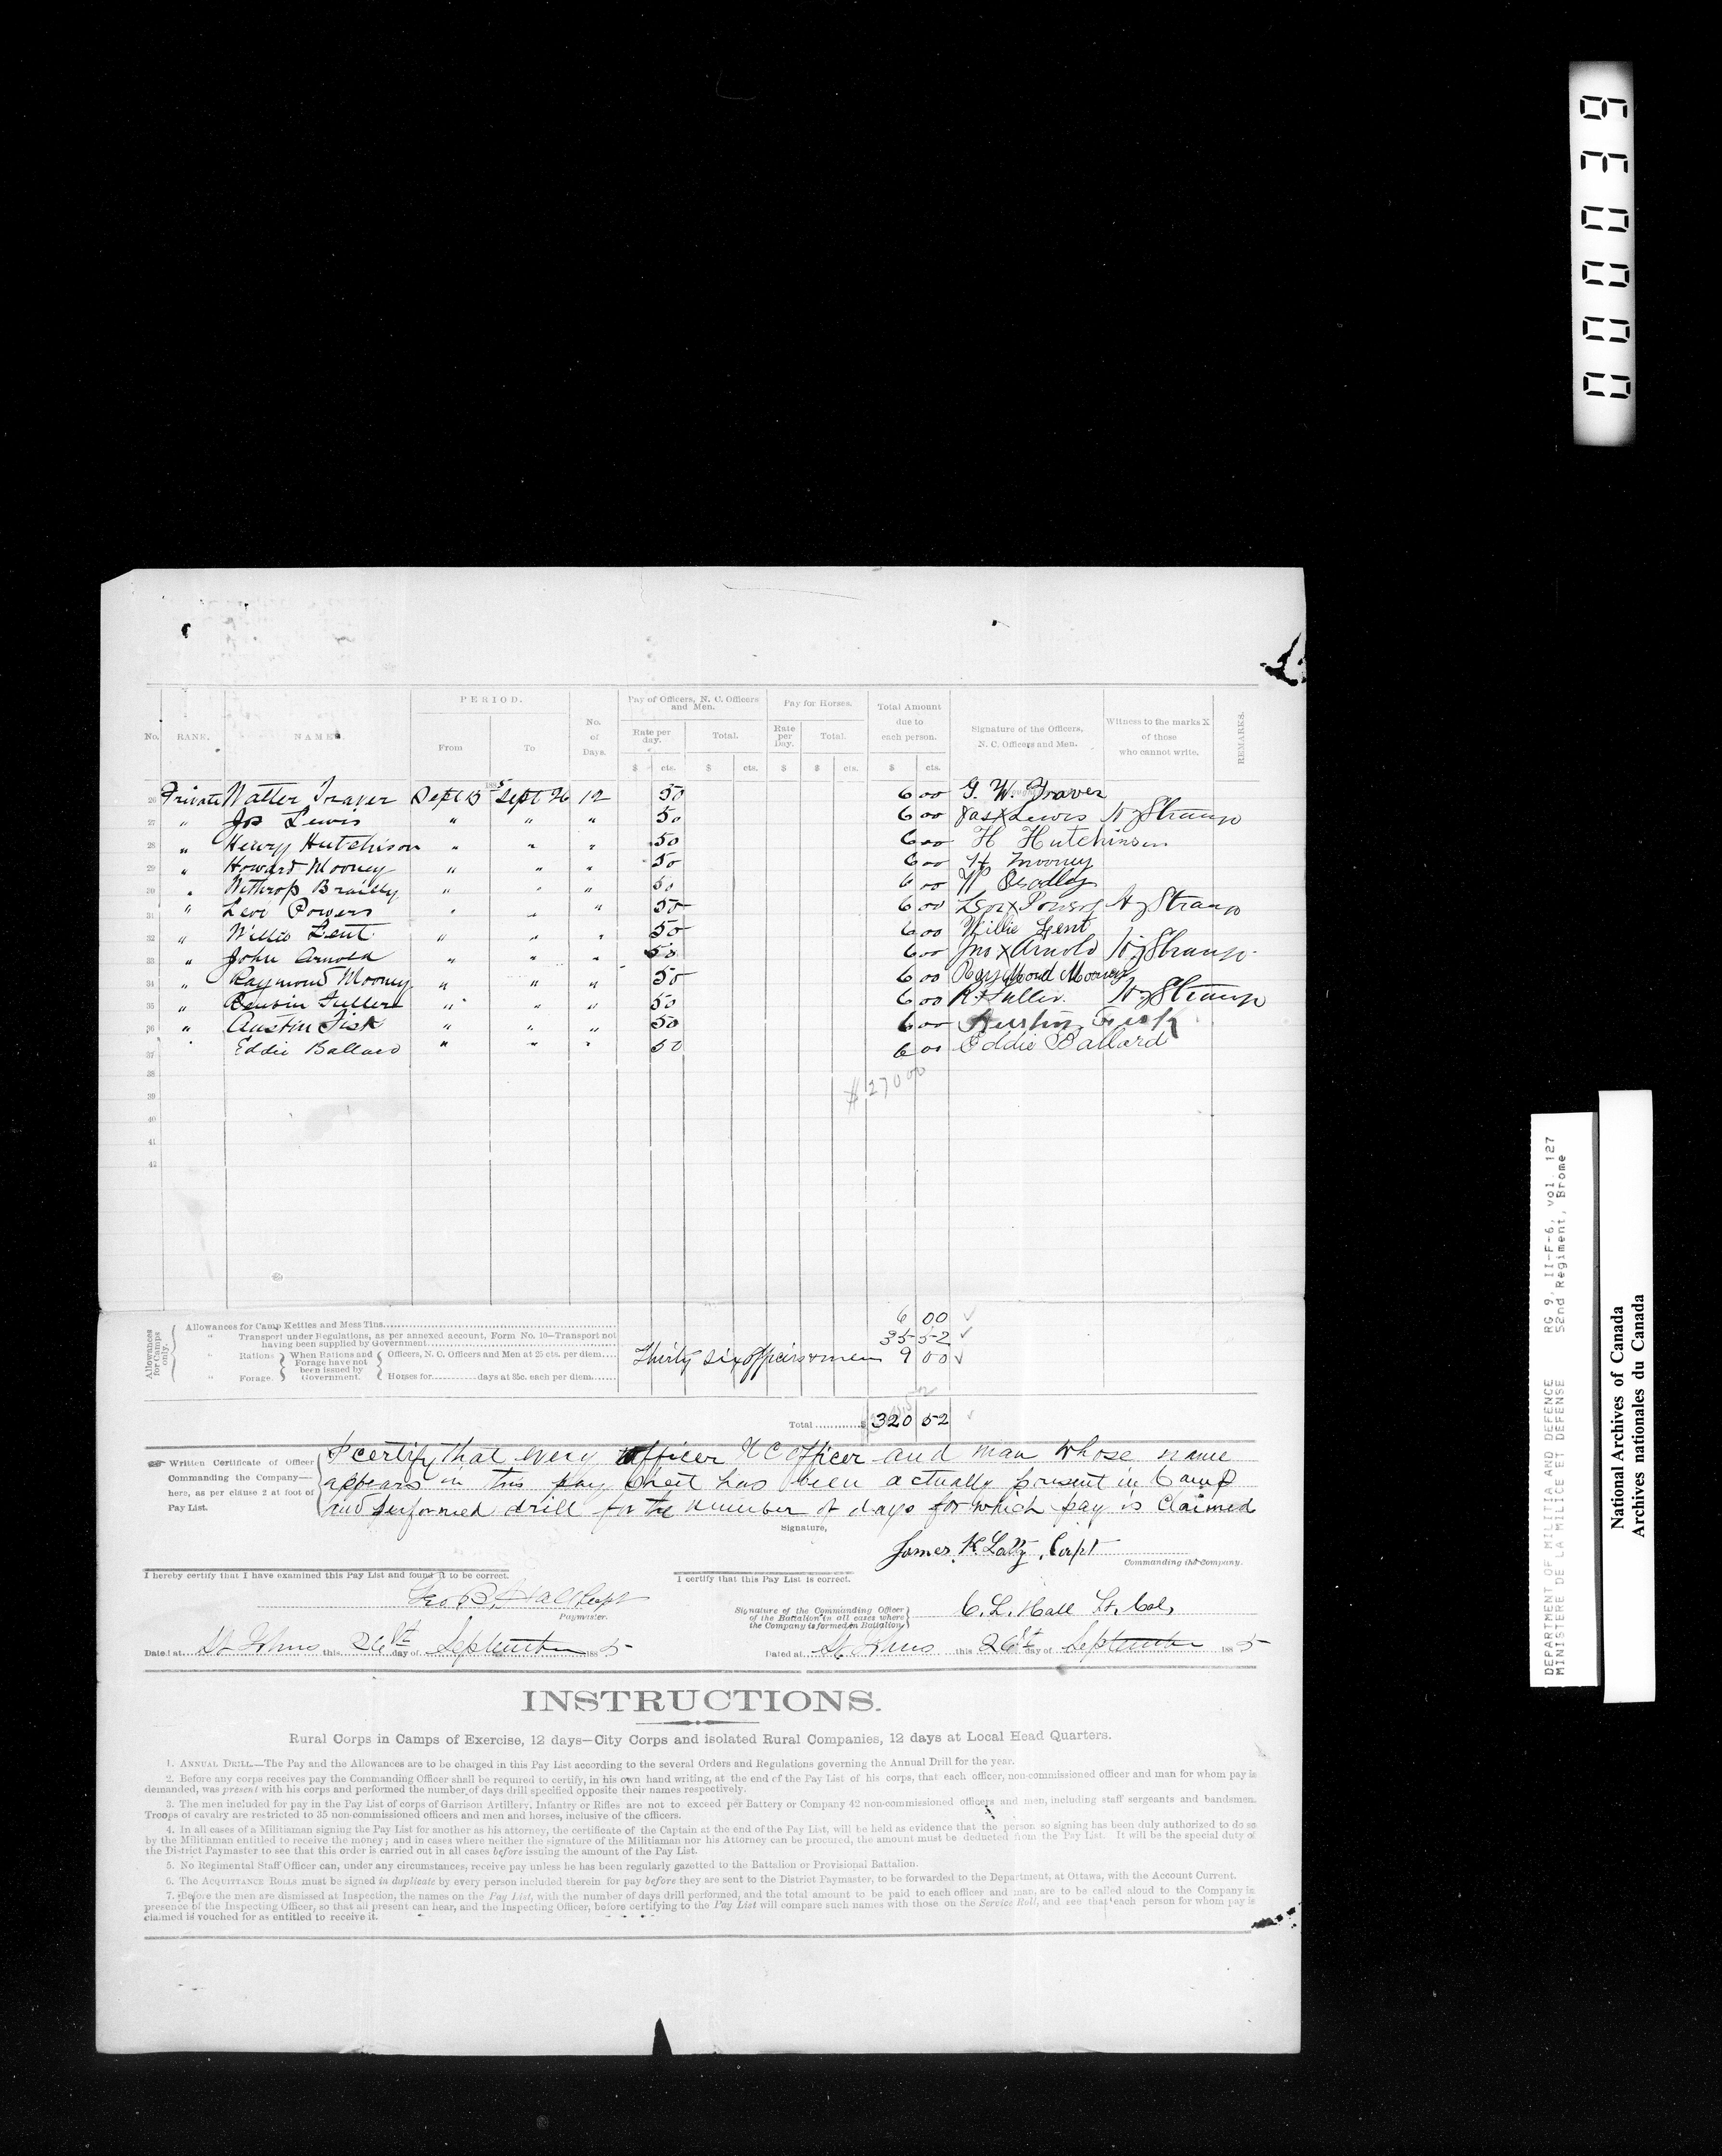 PERIOD.
Pay of Officers, N. C. Officers and Men.
Pay for Horses.
Total Amount due to each person.
No. RANK. NAMES. From To No. of Days. Rate per day. Total. Rate per Day. Total. Signature of the Officers, N. C. Officers and Men. Witness to the marks X of those who cannot write. REMARKS.
$ cts. $ cts. $ $ cts. $ cts.
1885
26 Private Walter Traver Sept 15 Sept 26 12 50 6 00 G. W. Traver
27 " Jos Lewis " " " 50 6 00 Jas X Lewis
28 " Henry Hutchison " " " 50 6 00 H Hutchinson
29 " Howard Mooney " " " 50 6 00 H Mooney
30 " Withrop Brailly " " " 50 6 00 W Bradley
31 " Levi Powers " " " 50 6 00 Levi X Powers
32 " Willis Lent " " " 50 6 00 Willie Lent
33 " John Arnold " " " 50 6 00 Jno X Arnold
34 " Raymond Mooney " " " 50 6 00 Raymond Mooney
35 " Fuller " " " 50 6 00 R X Fuller
36 " Austin Fisk " " " 50 6 00 Austin Fisk
37 " Eddie Ballard " " " 50 6 00 Eddie Ballard
38 $ 270 00
39
40
41
42
Allowances for Camps only.
Allowances for Camp Kettles and Mess Tins 6 00
" Transport under Regulations, as per annexed account, Form No. 10—Transport not having been supplied by Government 35 52
" Rations When Rations and Forage have not been issued by Government. Officers, N. C. Officers and Men at 25 cts. per diem Thirty six officers & men 9 00
" Forage. Horses for days at 35c. each per diem
Total $ 320 52
Written Certificate of Officer Commanding the Company—here, as per clause 2 at foot of Pay List.
I certify that every officer N C officer and man whose name
appears in this pay sheet has been actually present in Camp
and performed drill for the number of days for which pay is claimed
Signature,
James K. Laity, Capt
Commanding the Company.
I hereby certify that I have examined this Pay List and found it to be correct.
I certify that this Pay List is correct.
Geo B. Hall Capt
Paymaster.
Signature of the Commanding Officer of the Battalion in all cases where the Company is formed in Battalion
C. L. Hall Lt. Col.
Dated at St Johns this 26th day of September 1885
Dated at St Johns this 26th day of September 1885
INSTRUCTIONS.
Rural Corps in Camps of Exercise, 12 days—City Corps and isolated Rural Companies, 12 days at Local Head Quarters.
1. ANNUAL DRILL.—The Pay and the Allowances are to be charged in this Pay List according to the several Orders and Regulations governing the Annual Drill for the year.
2. Before any corps receives pay the Commanding Officer shall be required to certify, in his own hand writing, at the end of the Pay List of his corps, that each officer, non-commissioned officer and man for whom pay is
demanded, was present with his corps and performed the number of days drill specified opposite their names respectively.
3. The men included for pay in the Pay List of corps of Garrison Artillery, Infantry or Rifles are not to exceed per Battery or Company 42 non-commissioned officers and men, including staff sergeants and bandsmen.
Troops of cavalry are restricted to 35 non-commissioned officers and men and horses, inclusive of the officers.
4. In all cases of a Militiaman signing the Pay List for another as his attorney, the certificate of the Captain at the end of the Pay List, will be held as evidence that the person so signing has been duly authorized to do so
by the Militiaman entitled to receive the money; and in cases where neither the signature of the Militiaman nor his Attorney can be procured, the amount must be deducted from the Pay List. It will be the special duty of
the District Paymaster to see that this order is carried out in all cases before issuing the amount of the Pay List.
5. No Regimental Staff Officer can, under any circumstances, receive pay unless he has been regularly gazetted to the Battalion or Provisional Battalion.
6. The ACQUITTANCE ROLLS must be signed in duplicate by every person included therein for pay before they are sent to the District Paymaster, to be forwarded to the Department, at Ottawa, with the Account Current.
7. Before the men are dismissed at Inspection, the names on the Pay List, with the number of days drill performed, and the total amount to be paid to each officer and man, are to be called aloud to the Company in
presence of the Inspecting Officer, so that all present can hear, and the Inspecting Officer, before certifying to the Pay List will compare such names with those on the Service Roll, and see that each person for whom pay is
claimed is vouched for as entitled to receive it.
000039
DEPARTMENT OF MILITIA AND DEFENCE RG 9, II-F-6, vol 127
MINISTERE DE LA MILICE ET DEFENSE 52nd Regiment, Brome
National Archives of Canada
Archives nationales du Canada